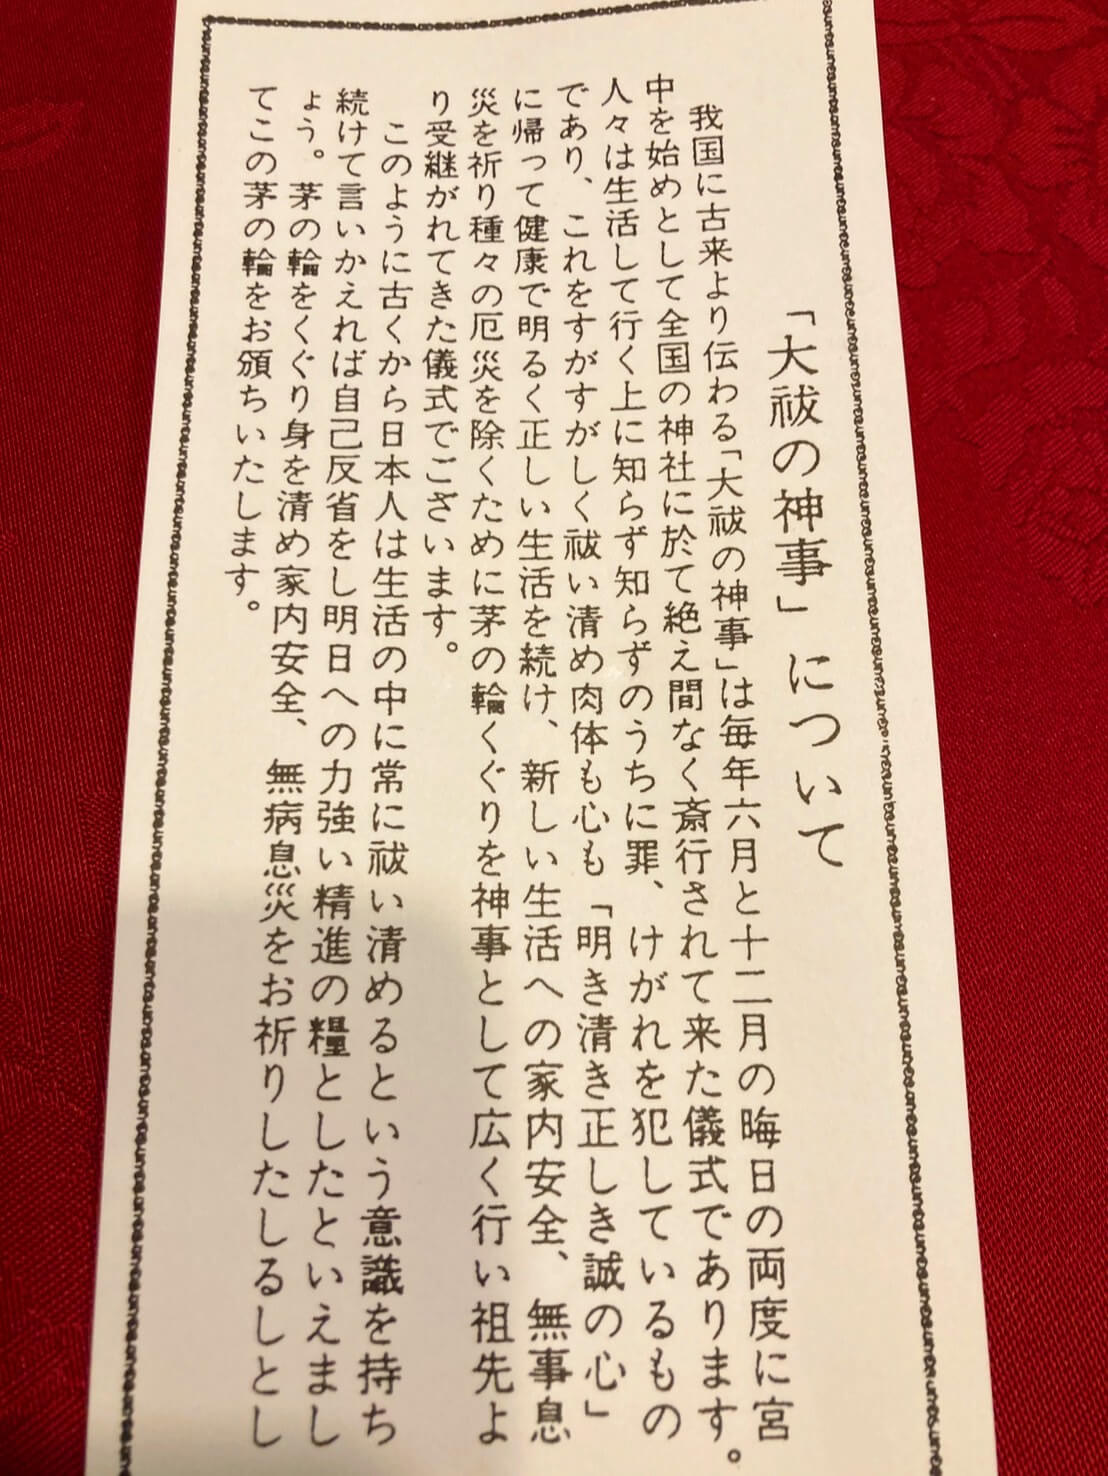 「大祓の神事」について
我国に古来より伝わる「大祓の神事」は毎年六月と十二月の晦日の両度に宮
中を始めとして全国の神社に於て絶え間なく斎行されて来た儀式であります。
人々は生活して行く上に知らず知らずのうちに罪、けがれを犯しているもの
であり、これをすがすがしく祓い清め肉体も心も「明き清き正しき誠の心」
に帰って健康で明るく正しい生活を続け、新しい生活への家内安全、無事息
災を祈り種々の厄災を除くために茅の輪くぐりを神事として広く行い祖先よ
り受継がれてきた儀式でございます。
このように古くから日本人は生活の中に常に祓い清めるという意識を持ち
続けて言いかえれば自己反省をし明日への力強い精進の糧としたといえまし
ょう。茅の輪をくぐり身を清め家内安全、無病息災をお祈りしたしるしとし
てこの茅の輪をお頒ちいたします。